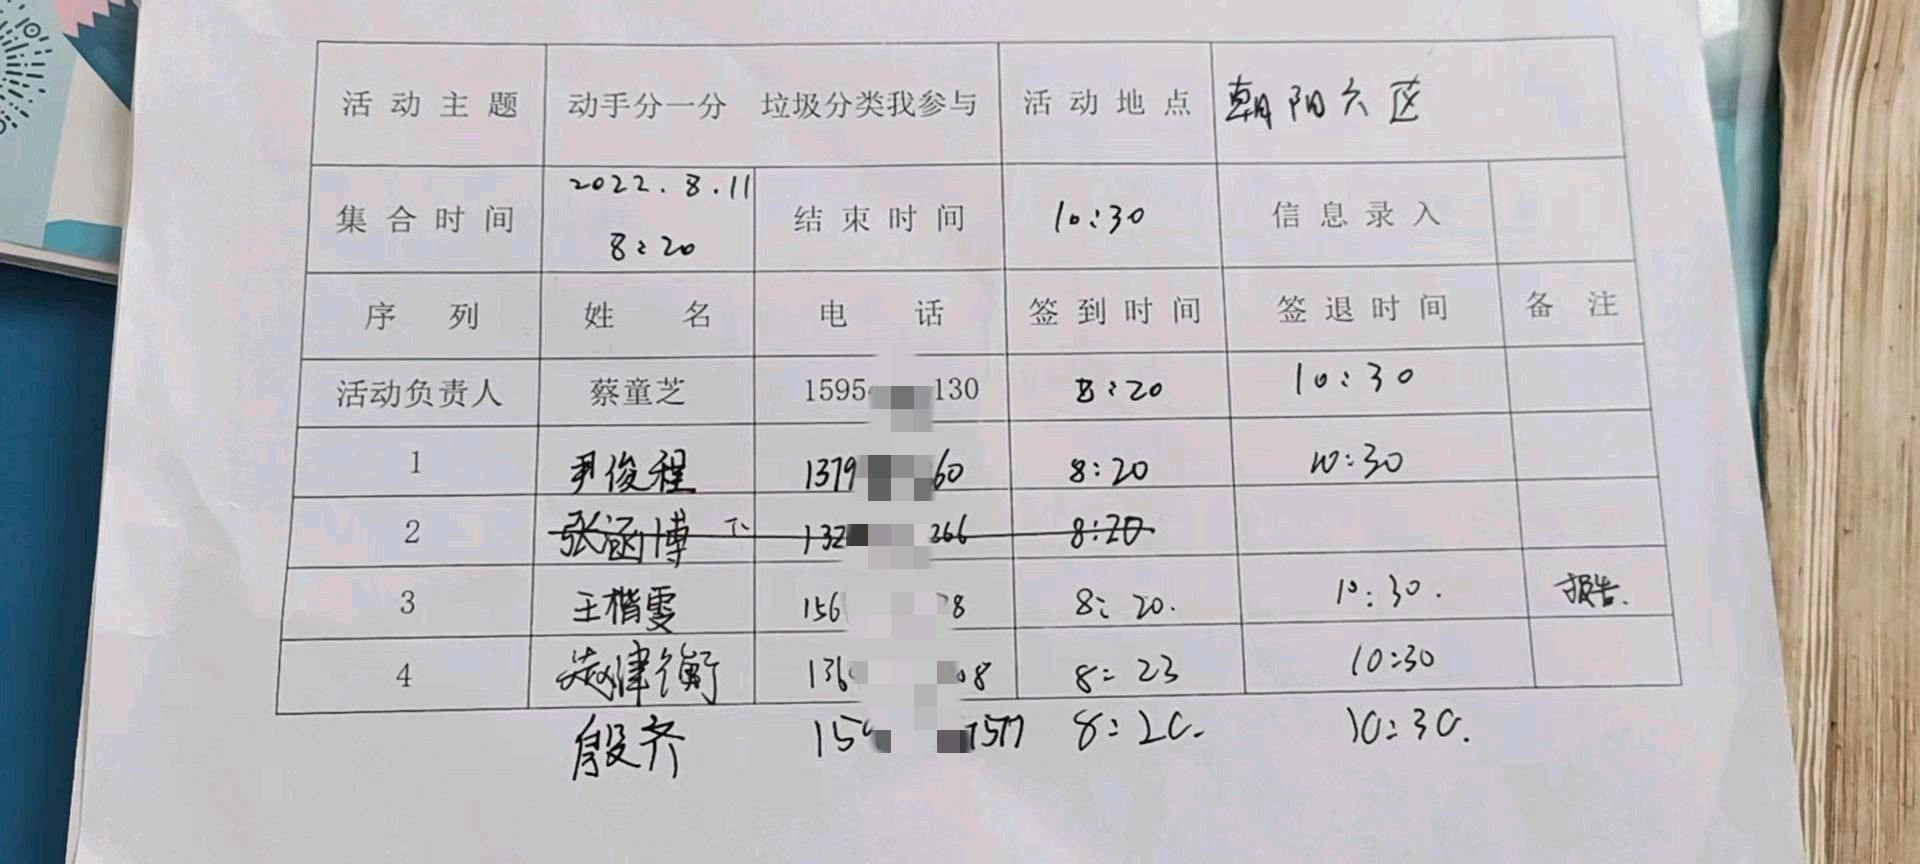 活动主题 动手分一分 垃圾分类我参与 活动地点 朝阳六区
集合时间 2022.8.11 8:20 结束时间 10:30 信息录入
序列 姓名 电话 签到时间 签退时间 备注
活动负责人 蔡童芝 1595 130 8:20 10:30
1 尹俊程 1379 60 8:20 10:30
2 张涵博 132 266 8:20
3 王楷雯 156 8 8:20. 10:30. 报告.
4 赵津衡 136 08 8:23 10:30
殷齐 159 7577 8:20. 10:30.